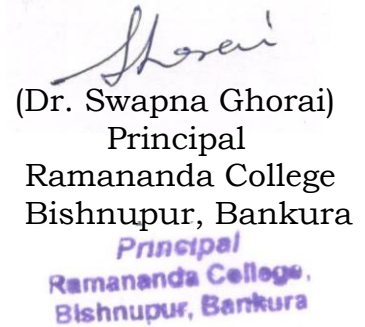 Ghorai
(Dr. Swapna Ghorai)
Principal
Ramananda College
Bishnupur, Bankura
Principal
Ramananda College,
Bishnupur, Bankura